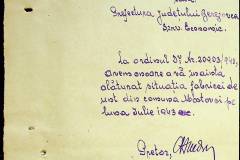 Prefectura Județului Berezovca
Serv. Economic
La ordinul Dv. Nr. 20903/943,
avem onoare a vă înainta
alăturat situația fabricei de
ust din comuna Mostovoi pe
luna Iulie 1943
Pretor,